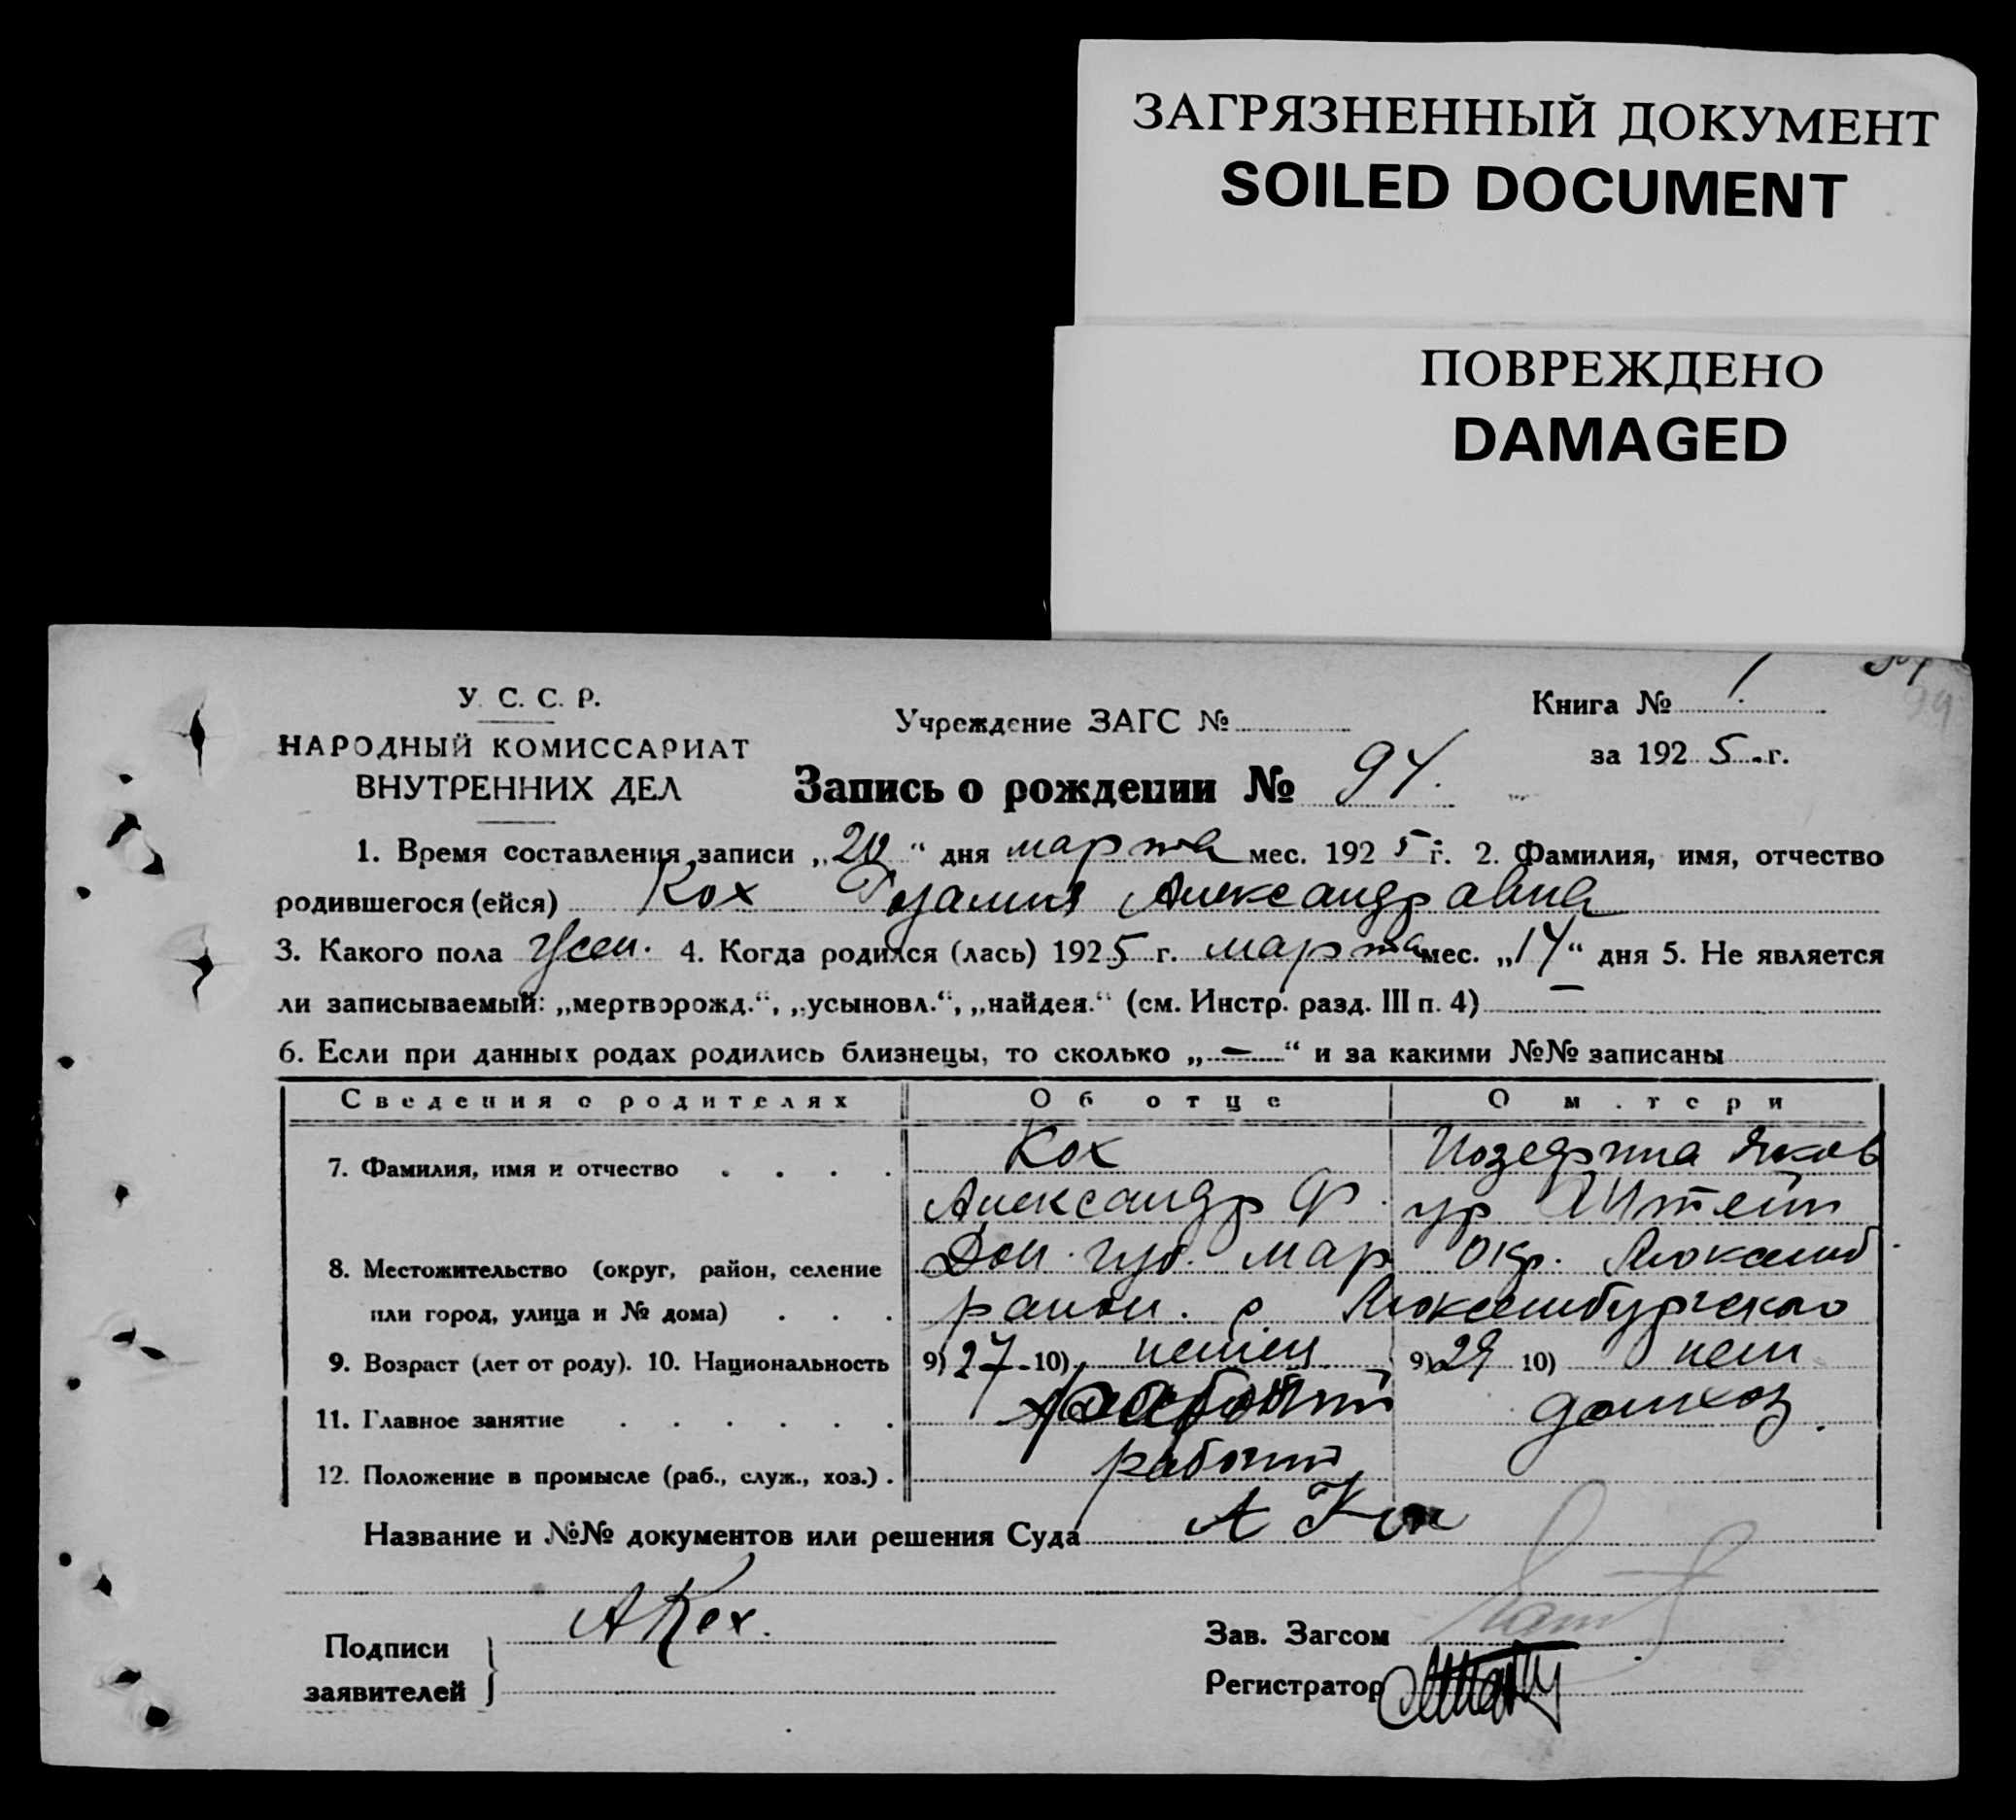 ЗАГРЯЗНЕННЫЙ ДОКУМЕНТ
SOILED DOCUMENT
ПОВРЕЖДЕНО
DAMAGED
У. С. С. Р.
НАРОДНЫЙ КОМИССАРИАТ
ВНУТРЕННИХ ДЕЛ
Учреждение ЗАГС №
Книга № 1
за 1925 г.
Запись о рождении № 94.
1. Время составления записи „20“ дня марта мес. 1925 г. 2. Фамилия, имя, отчество
родившегося (ейся) Кох Розалия Александравна
3. Какого пола жен. 4. Когда родился (лась) 1925 г. марта мес. „14“ дня 5. Не является
ли записываемый: „мертворожд.“, „усыновл.“, „найден.“ (см. Инстр. разд. III п. 4) —
6. Если при данных родах родились близнецы, то сколько „—“ и за какими №№ записаны
Сведения о родителях Об отце О матери
7. Фамилия, имя и отчество Кох Иозефина Яков
Александр Ф. ур Штейн
8. Местожительство (округ, район, селение Дон. губ. Мар Окр. Люксемб.
или город, улица и № дома) район. с. Люксембургского
9. Возраст (лет от роду). 10. Национальность 9) 27 10) немец 9) 29 10) нем
11. Главное занятие домхоз.
12. Положение в промысле (раб., служ., хоз.)
Название и №№ документов или решения Суда А Кох
Подписи заявителей А Кох.
Зав. Загсом
Регистратор